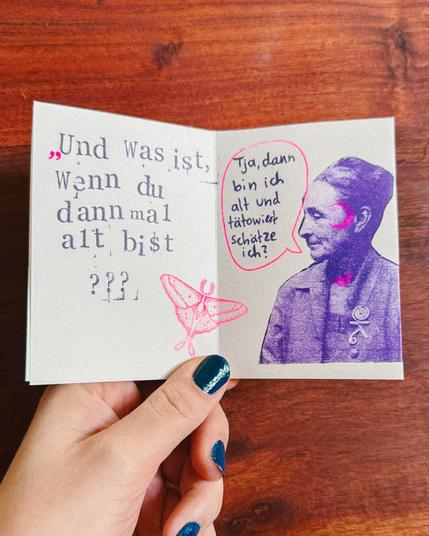 „Und Was ist,
Wenn du
dann mal
alt bist
???
Tja, dann
bin ich
alt und
tätowiert
schätze
ich?